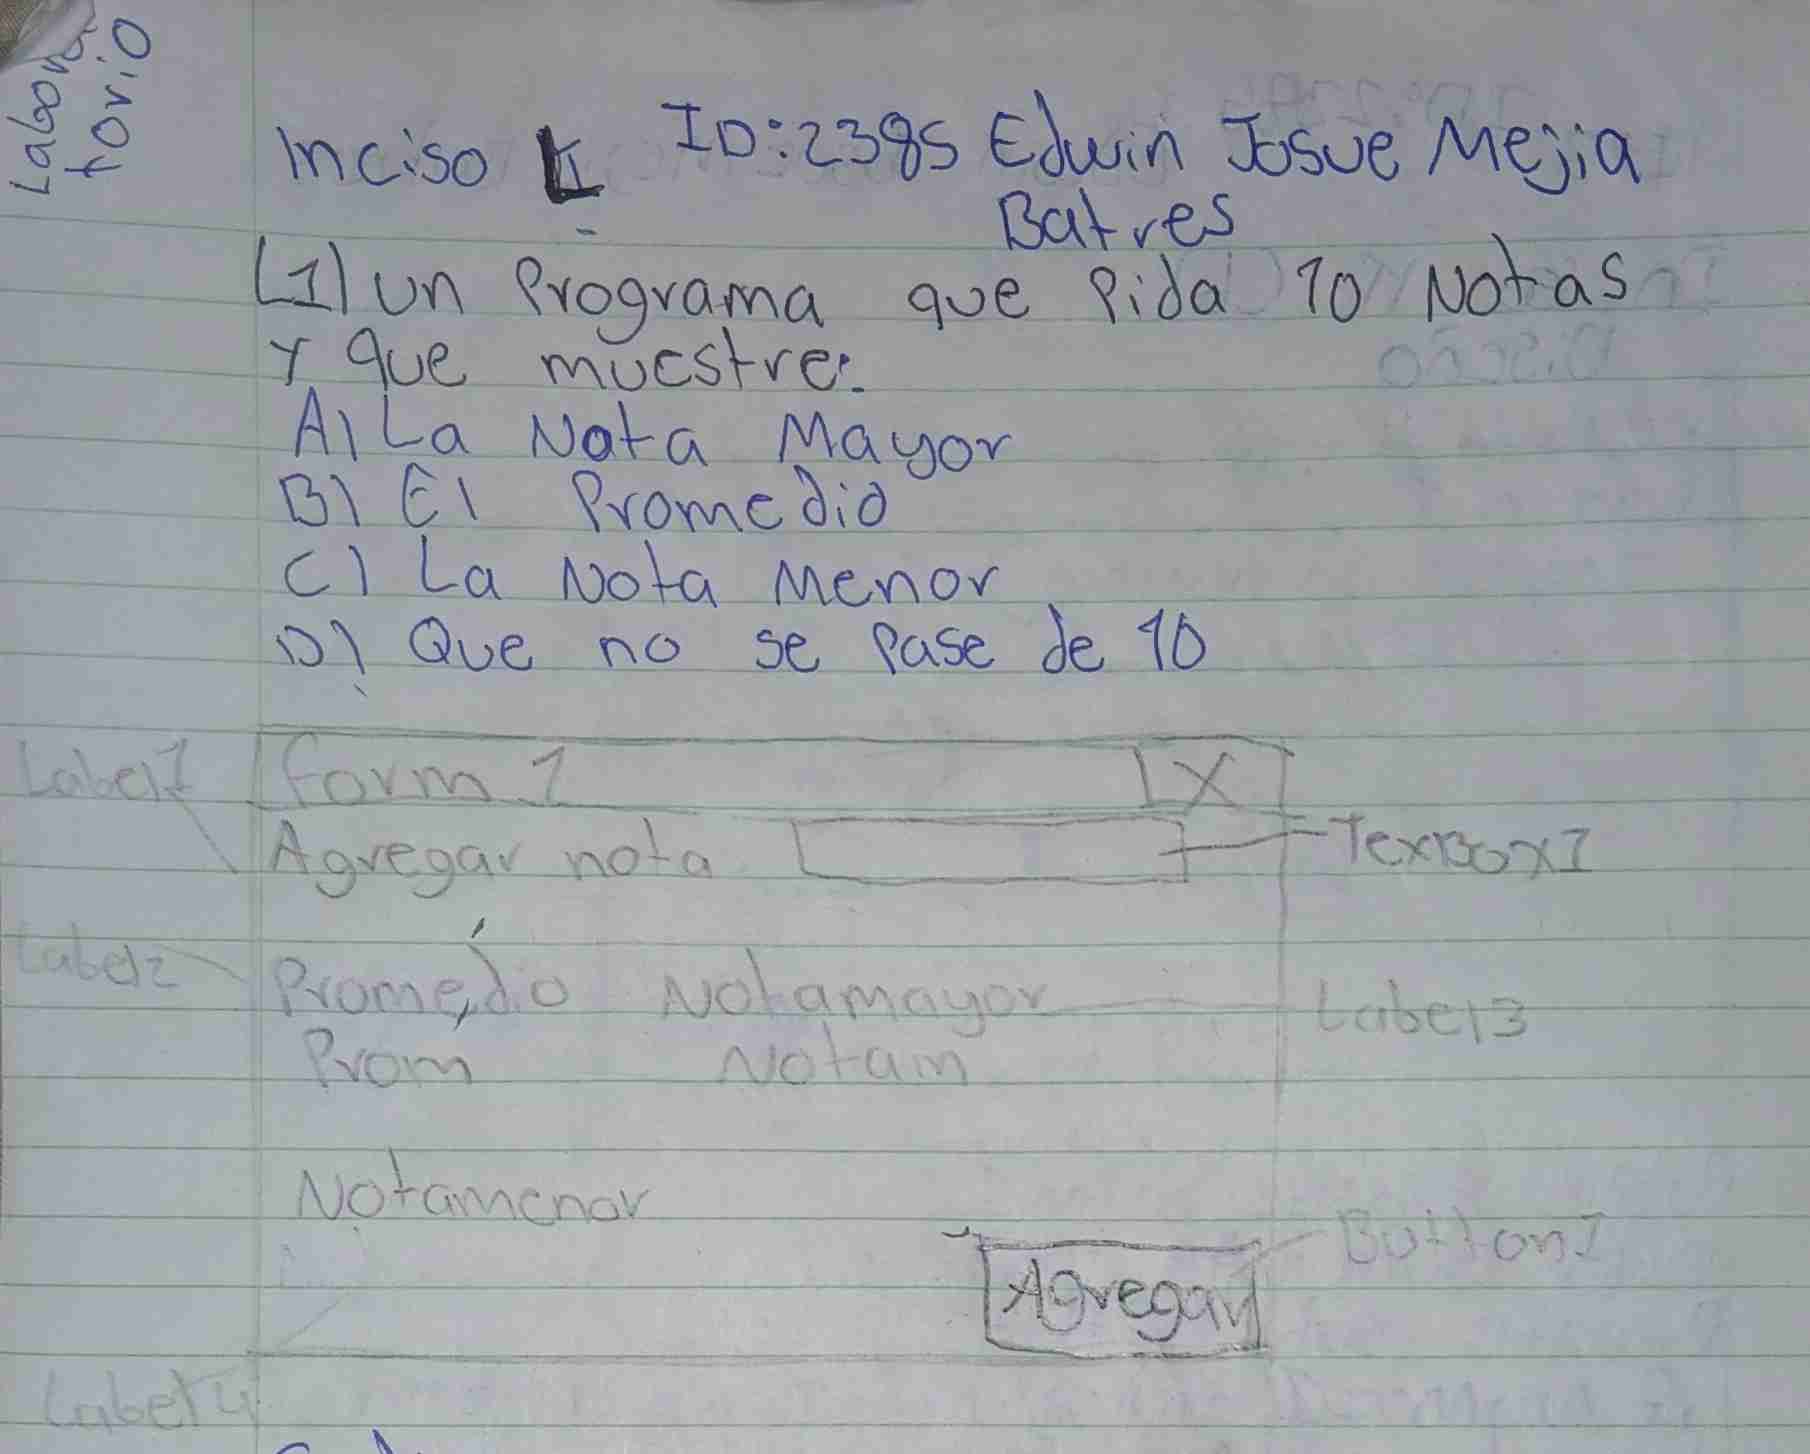 Labora
torio
Inciso I ID:2385 Edwin Josue Mejia
Batres
(1) un Programa que Pida 10 Notas
Y que muestre:
A) La Nota Mayor
B) El Promedio
C) La Nota Menor
D) Que no se Pase de 10
Label1 Form 1 X
Agregar nota TexBox1
Label2 Promedio Notamayor Label3
Prom Notam
Notamenor
Button1
Agregar
Label4